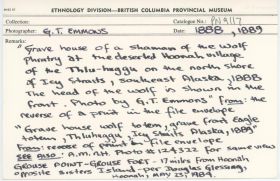 ETHNOLOGY DIVISION—BRITISH COLUMBIA PROVINCIAL MUSEUM
Collection: Catalogue No.: PN 9117
Photographer: G.T. Emmons 1888, 1889
Remarks:
"Grave house of a shaman of the wolf
phratry at the deserted Hoonah village
of the Thlu-huggu on the north shore
of Icy Straits, Southeast Alaska, 1888
The head of the wolf is shown on the
front. Photo by G.T. Emmons". From: the
reverse of a print in the file envelope.
"Grave house wolf totem, grave front Eagle
totem, Thluhuggu, Icy Straits Alaska, 1889"
From: reverse of print in file envelope.
SEE Also: A.M.N.H. Photo # 24332 for same view
GROUSE POINT - GROUSE FORT - 17 miles from Hoonah,
opposite Sisters Island - per Douglas Glessing,
Hoonah, May 25, 1989.